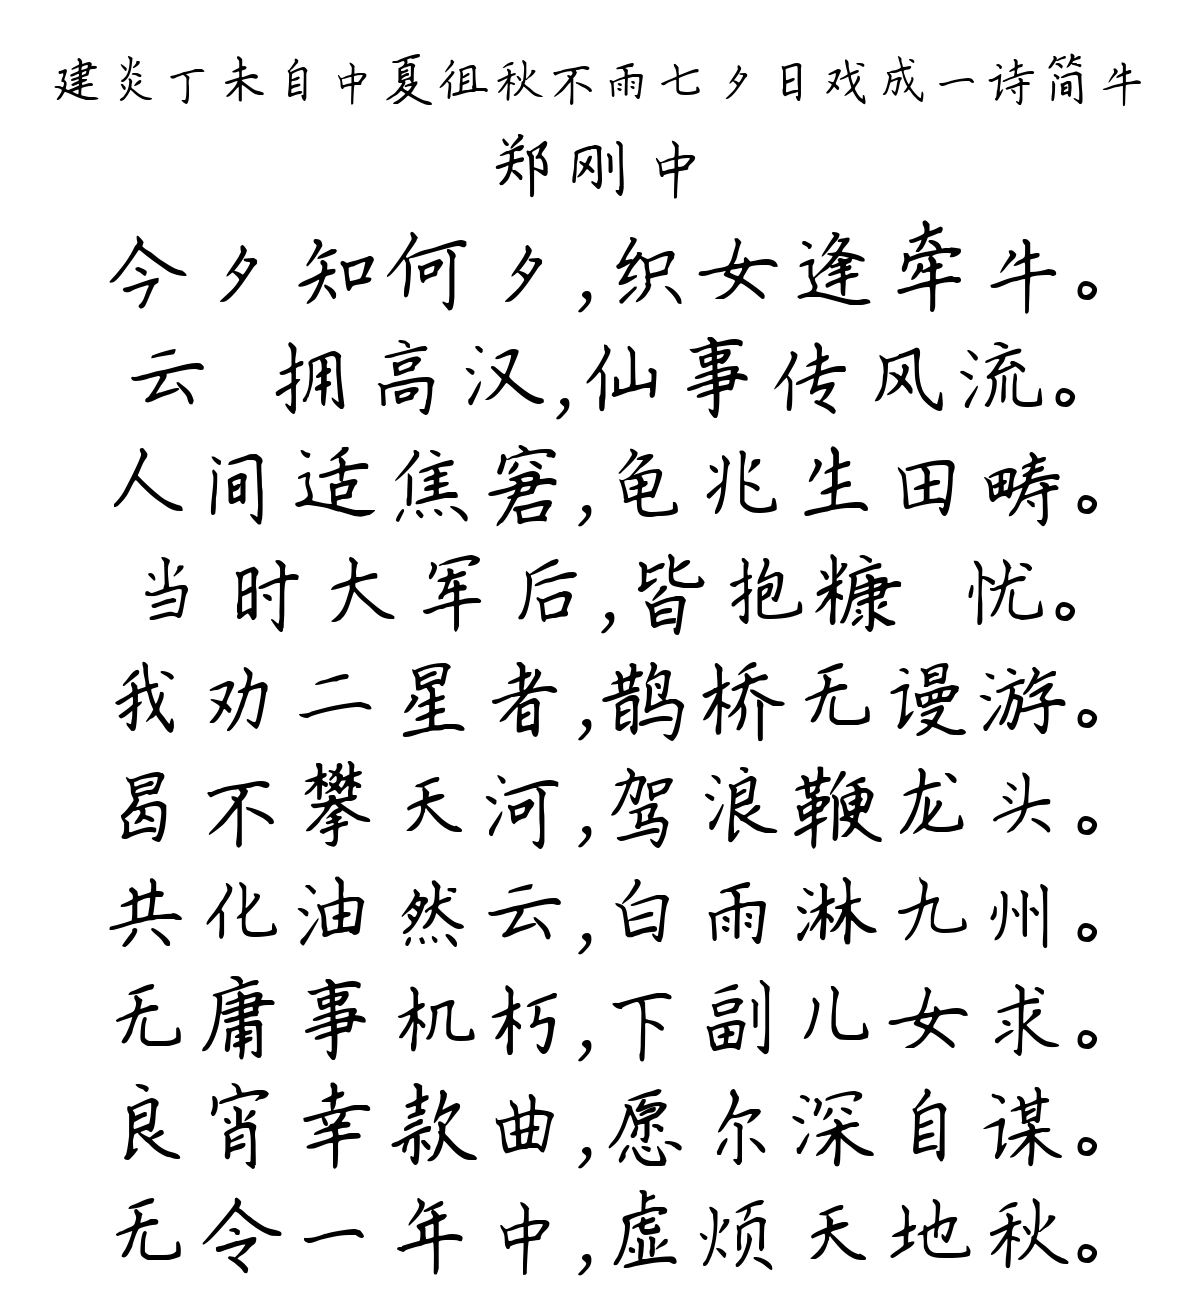 建炎丁未自中夏徂秋不雨七夕日戏成一诗简牛
郑刚中
今夕知何夕,织女逢牵牛。
云 拥高汉,仙事传风流。
人间适焦窘,龟兆生田畴。
当时大军后,皆抱糠 忧。
我劝二星者,鹊桥无谩游。
曷不攀天河,驾浪鞭龙头。
共化油然云,白雨淋九州。
无庸事机杼,下副儿女求。
良宵幸款曲,愿尔深自谋。
无令一年中,虚烦天地秋。